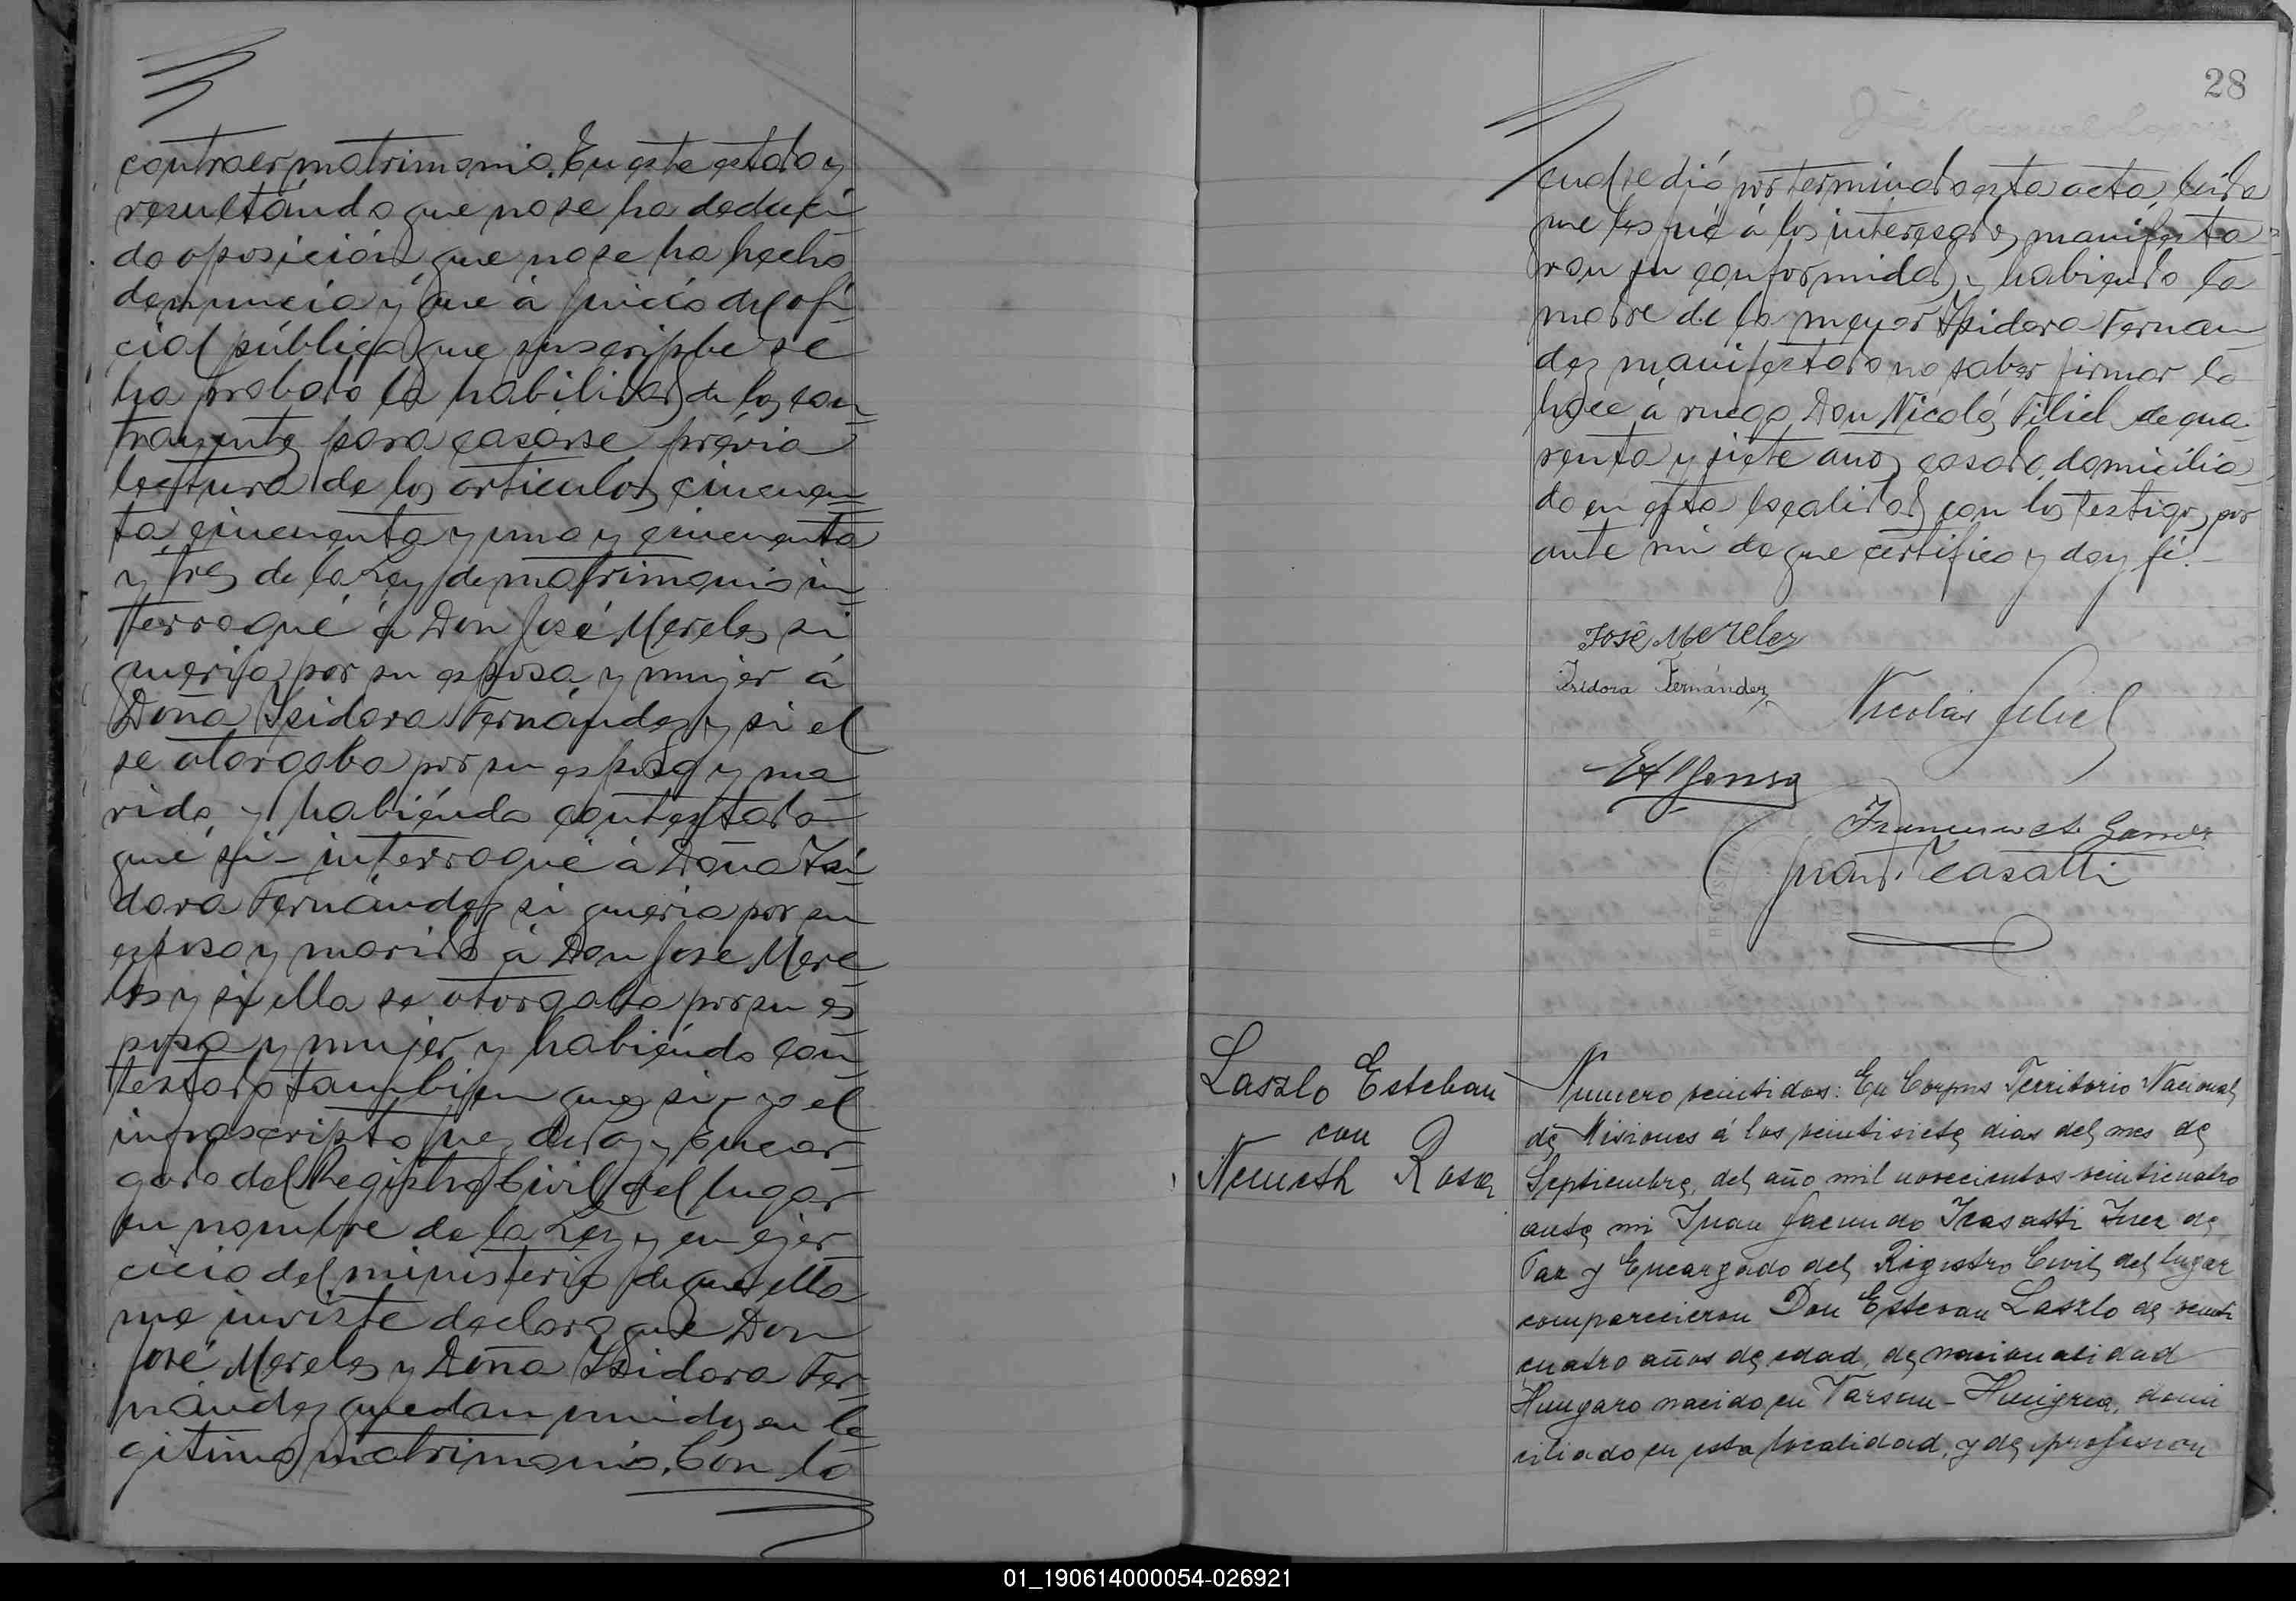 contraer matrimonio. En este estado y
resultando que no se ha deduci
do oposición, que no se ha hecho
denuncia y que á juicio del ofi
cial público que suscribe se
ha probado la habilidad de los con
trayentes para casarse prévia
lectura de los articulos cincuen
ta, cincuenta y uno y cincuenta
y tres de la Ley de matrimonio in
terrogué á Don José Mereles si
queria por su esposa y mujer á
Doña Isidora Fernández y si el
se otorgaba por su esposo y ma
rido y habiéndo contestado
que si - interrogué á Doña Isi
dora Fernández si queria por su
esposo y marido á Don José Mere
les y si ella se otorgaba por su es
posa y mujer y habiéndo con
testado tambien que si - yo el
infrascripto Juez de Paz y Encar
gado del Registro Civil del lugar
en nombre de la Ley y en ejer
cicio del ministerio de que ella
me inviste declaro que Don
José Mereles y Doña Isidora Fer
nández quedan unidos en le
gitimo matrimonio. Con lo
28
cual se dió por terminada esta acta, leida
que les fué á los interesados manifesta
ron su conformidad y habiendo la
madre de la menor Isidora Fernan
dez manifestado no saber firmar lo
hace á ruego Don Nicolás Filiel de qua
renta y siete años casado, domicilia
do en esta localidad con los testigos por
ante mi de que certifico y doy fé. -
José Mereles
Isidora Fernández
Nicolás Filiel
Juan F. Casatti
Laszlo Esteban
con
Nemeth Rosa
Numero veintidos: En Corpus Territorio Nacional
de Misiones á los veintisiete dias del mes de
Septiembre, del año mil novecientos veinticuatro
ante mi Juan Facundo Icasatti Juez de
Paz y Encargado del Registro Civil del lugar
comparecieron Don Estevan Laszlo de veinti
cuatro años de edad, de nacionalidad
Hungaro nacido en - Hungria, domi
ciliado en esta localidad, y de profesion
01_190614000054-026921